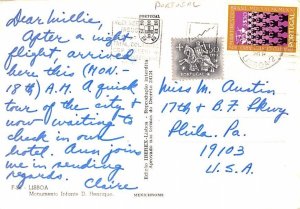 Dear Millie,
After a night
flight arrived
here this (MON.-
18th) A.M. A quick
tour of the city &
now waiting to
check in our
hotel. Ann joins
me in sending
regards.
Claire
LISBOA
Monumento Infante D. Henrique
PORTUGAL
PORTUGAL
Miss M. Austin
17th & B.F. Pkwy
Phila. Pa.
19103
U.S.A.